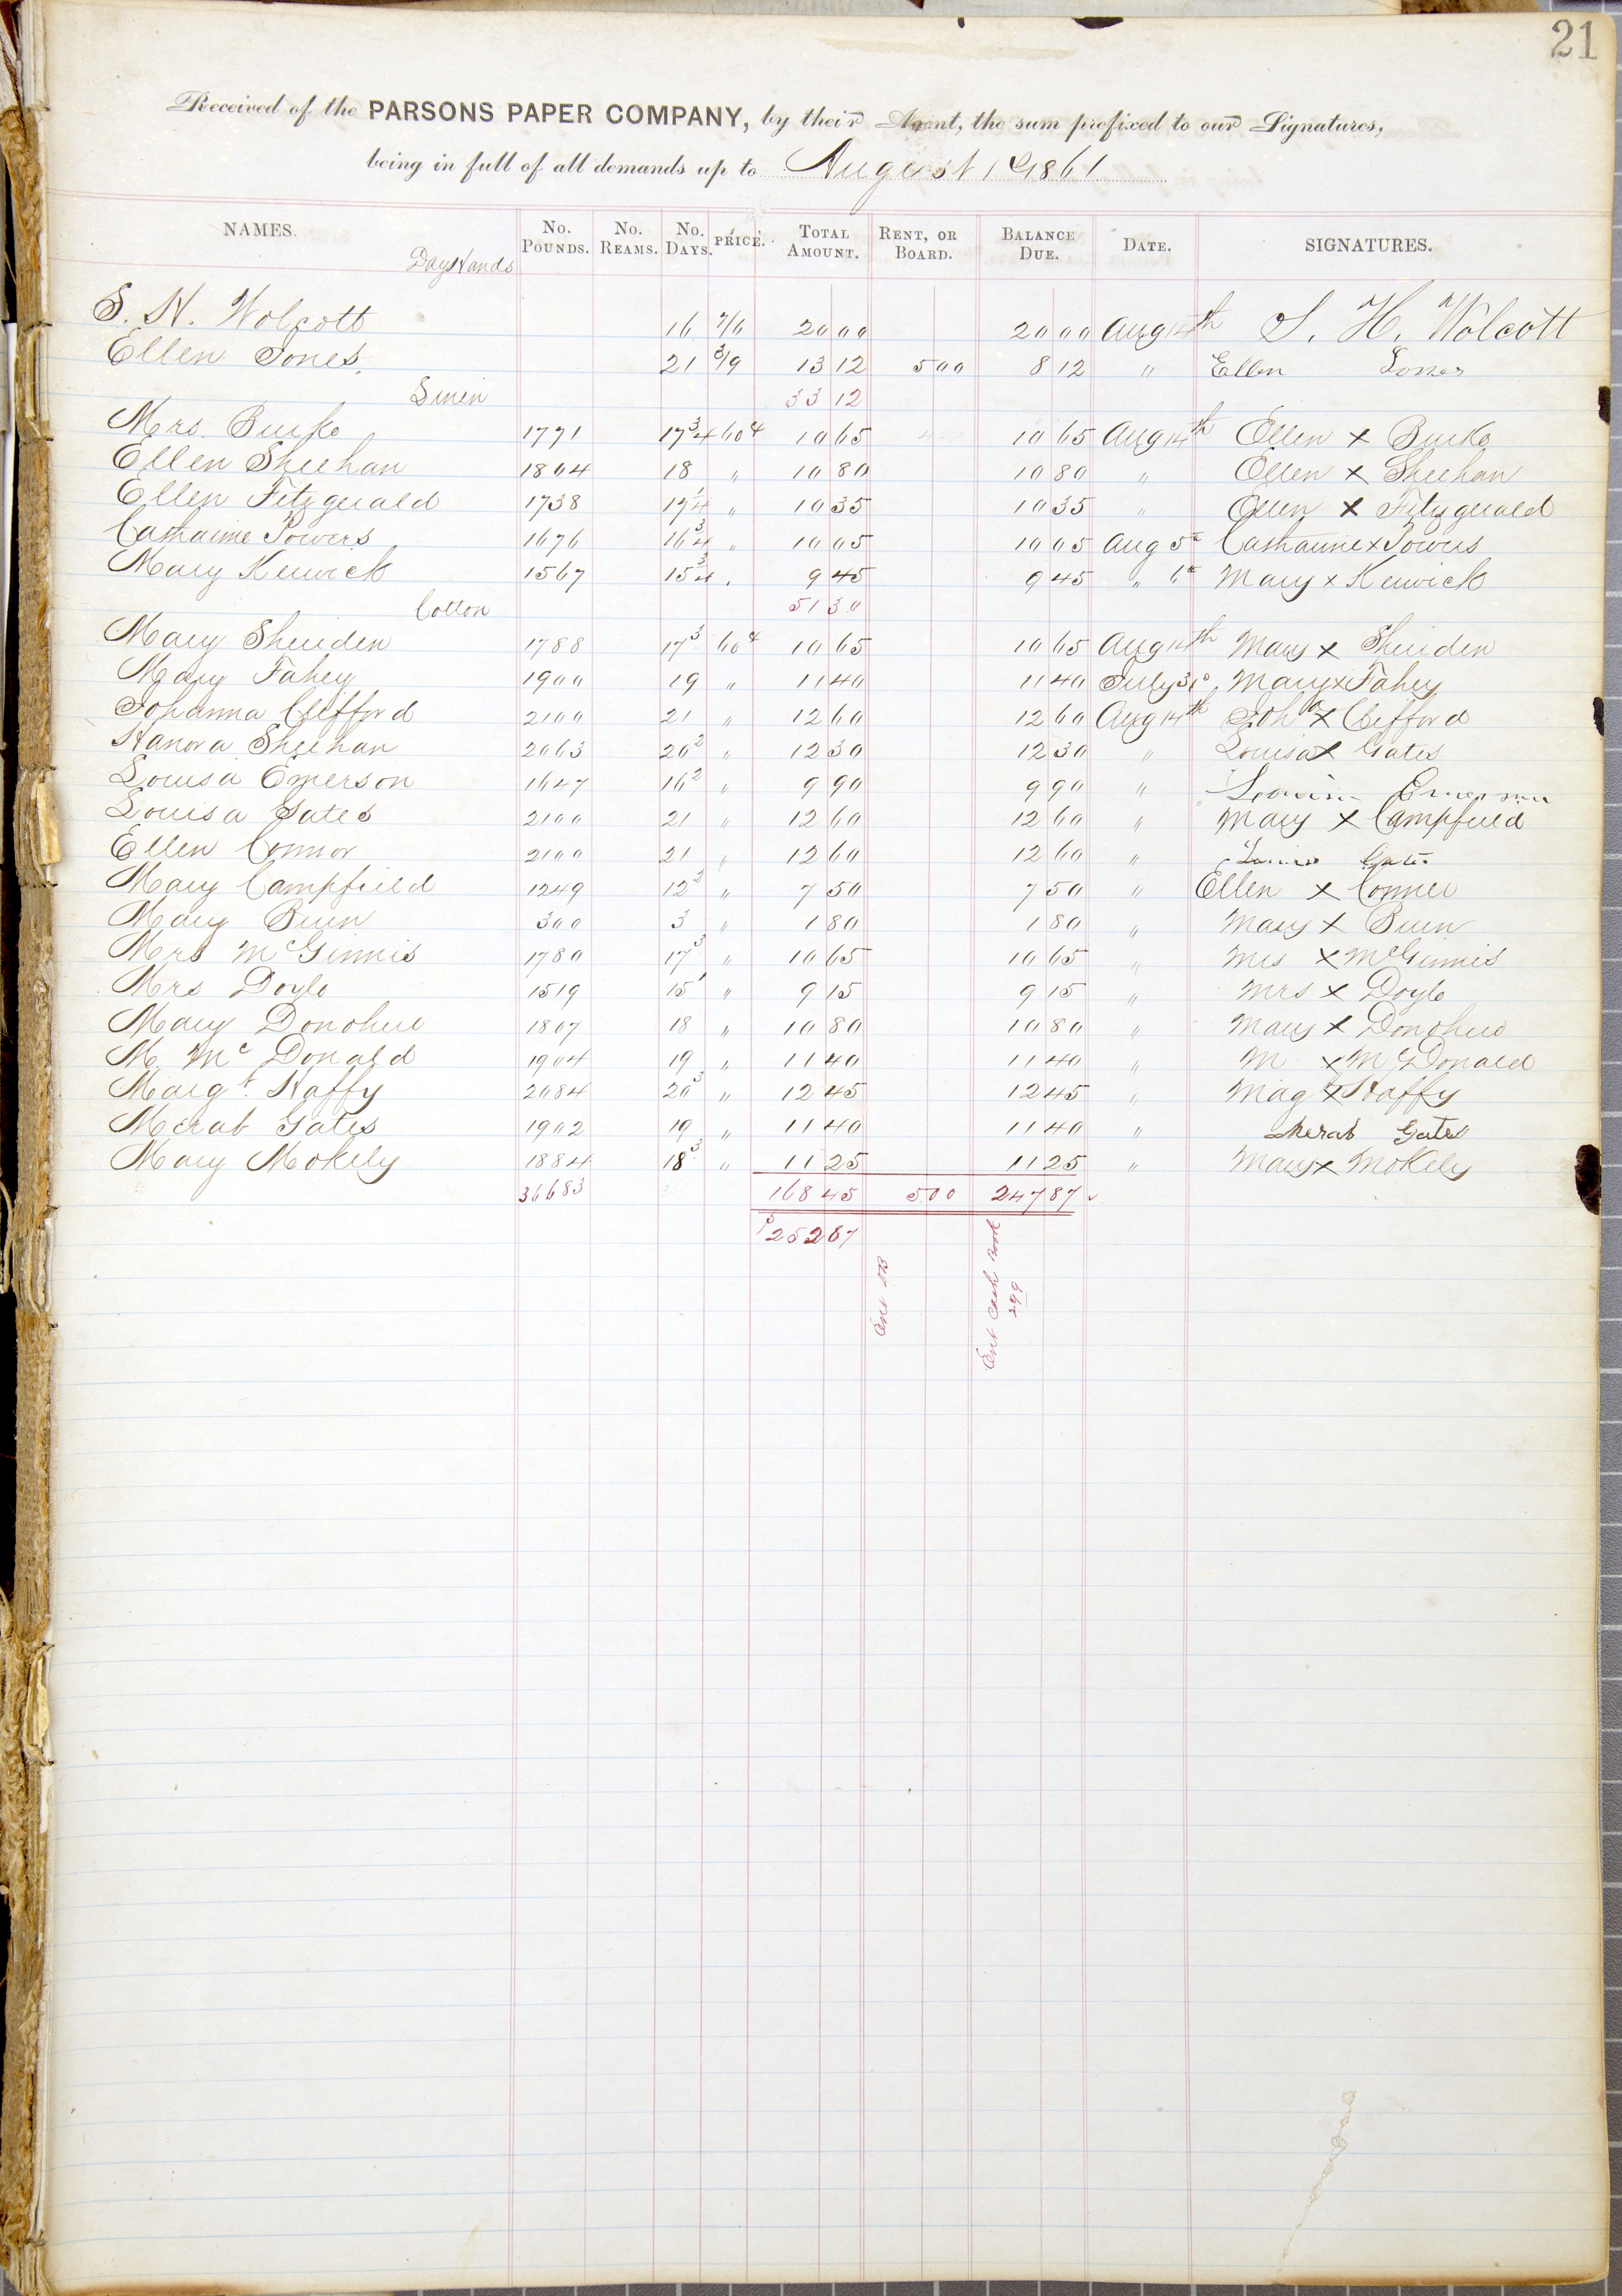 21
Received of the PARSONS PAPER COMPANY, by their Agent, the sum prefixed to our Signatures,
being in full of all demands up to August 1st 1861
NAMES. No. POUNDS. No. REAMS. No. DAYS. PRICE. TOTAL AMOUNT. RENT, OR BOARD. BALANCE DUE. DATE. SIGNATURES.
Day Hands
S. H. Wolcott 16 7/6 20 00 20 00 Aug 14th S. H. Wolcott
Ellen Jones 21 3/9 13 12 5 00 8 12 " Ellen Jones
Linen 33 12
Mrs. Burke 1771 17 3/4 60 4 10 65 10 65 Aug 14th Ellen x Burke
Ellen Sheehan 1804 18 " 10 80 10 80 " Ellen x Sheehan
Ellen Fitzgerald 1738 17 1/4 " 10 35 10 35 " Ellen x Fitzgerald
Catharine Powers 1676 16 3/4 " 10 05 10 05 Aug 5th Catharine x Powers
Mary Kerwick 1567 15 3/4 " 9 45 9 45 " 6th Mary x Kerwick
Cotton 51 30
Mary Sheriden 1788 17 3 60 4 10 65 10 65 Aug 14th Mary x Sheriden
Mary Fahey 1900 19 " 11 40 11 40 July 31 Mary x Fahey
Johanna Clifford 2100 21 " 12 60 12 60 Aug 14th Joha x Clifford
Hanora Sheehan 2063 20 2 " 12 30 12 30 " Louisa x Gates
Louisa Emerson 1647 16 2 " 9 90 9 90 " Louisa Emerson
Louisa Gates 2100 21 " 12 60 12 60 " Mary x Campfield
Ellen Connor 2100 21 " 12 60 12 60 " Louisa Gates
Mary Campfield 1249 12 2 " 7 50 7 50 " Ellen x Conner
Mary Burn 300 3 " 1 80 1 80 " Mary x Burn
Mrs McGinnis 1780 17 3 " 10 65 10 65 " Mrs x McGinnis
Mrs Doyle 1519 15 1 " 9 15 9 15 " Mrs x Doyle
Mary Donohue 1807 18 " 10 80 10 80 " Mary x Donohue
M. McDonald 1904 19 " 11 40 11 40 " M x McDonald
Margt. Haffy 2084 20 3 " 12 45 12 45 " Mag x Haffy
Merab Gates 1902 19 " 11 40 11 40 " Merab Gates
Mary Mokely 1884 18 3 " 11 25 11 25 " Mary x Mokely
36683 168 45 5 00 247 87
$252 87
Ent Cash Book
299